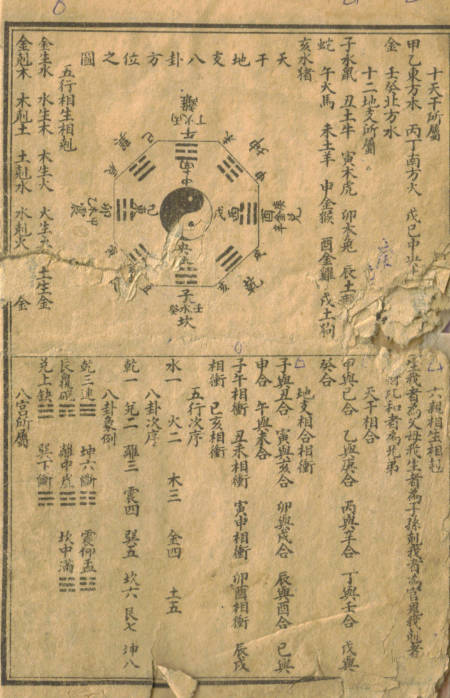 十天干所屬
甲乙東方木 丙丁南方火 戊己中央
金 壬癸北方水
十二地支所屬
子水鼠 丑土牛 寅木虎 卯木兔 辰土
蛇 午火馬 未土羊 申金猴 酉金雞 戌土狗
亥水猪
天干地支八卦方位之圖
離
丁火丙
午
巽
巳
坤
卯
震
己
戊
酉
酉
兌
乾
亥
子
癸水壬
坎
五行相生相剋
金生水 水生木 木生火 火生 土生金
金剋木 木剋土 土剋水 水剋火 金
六親相生相剋
生我者為父母我生者為子孫剋我者為官鬼我剋者
財比和者為兄弟
天干相合
甲與己合 乙與庚合 丙與辛合 丁與壬合 戊與
癸合
地支相合相衝
子與丑合 寅與亥合 卯與戌合 辰與酉合 巳與
申合 午與未合
子午相衝 丑未相衝 寅申相衝 卯酉相衝 辰戌
相衝 巳亥相衝
五行次序
水一 火二 木三 金四 土五
八卦次序
乾一 兌二 離三 震四 巽五 坎六 艮七 坤八
八卦象例
乾三連☰ 坤六斷☷ 震仰盂☳
艮覆碗☶ 離中虛☲ 坎中滿☵
兌上缺☱ 巽下斷☴
八宮所屬